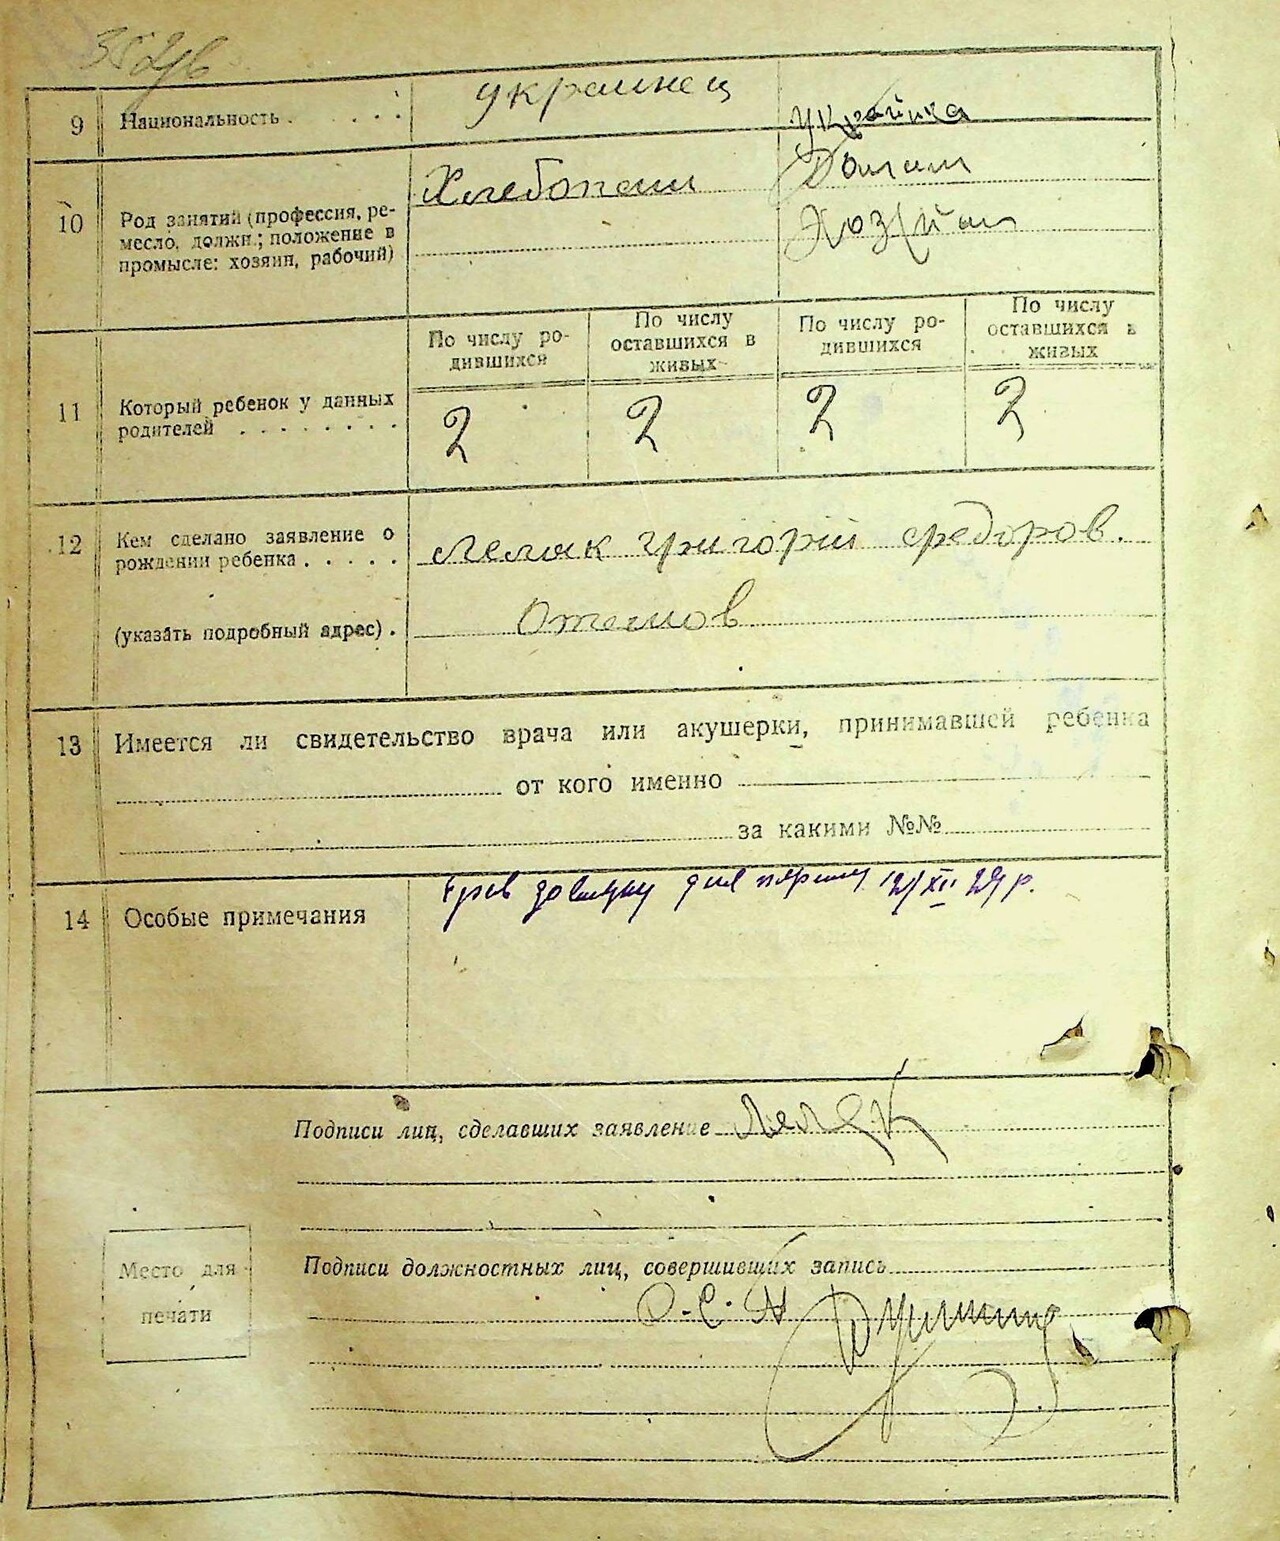 9 Национальность . . . . . украинец Украинка
10 Род занятий (профессия, ре-
месло, должн.; положение в
промысле: хозяин, рабочий)
Хлебопаш Домаш
Хозяй
По числу ро-
дившихся
По числу
оставшихся в
живых
По числу ро-
дившихся
По числу
оставшихся в
живых
11 Который ребенок у данных
родителей . . . . . . . .
2 2 2 2
12 Кем сделано заявление о
рождении ребенка . . . . .
Лемак Григорій Федоров.
(указать подробный адрес) .
13 Имеется ли свидетельство врача или акушерки, принимавшей ребенка
от кого именно
за какими №№
14 Особые примечания
довідку для XII 29 р.
Подписи лиц, сделавших заявление
Подписи должностных лиц, совершивших запись
Место для
печати